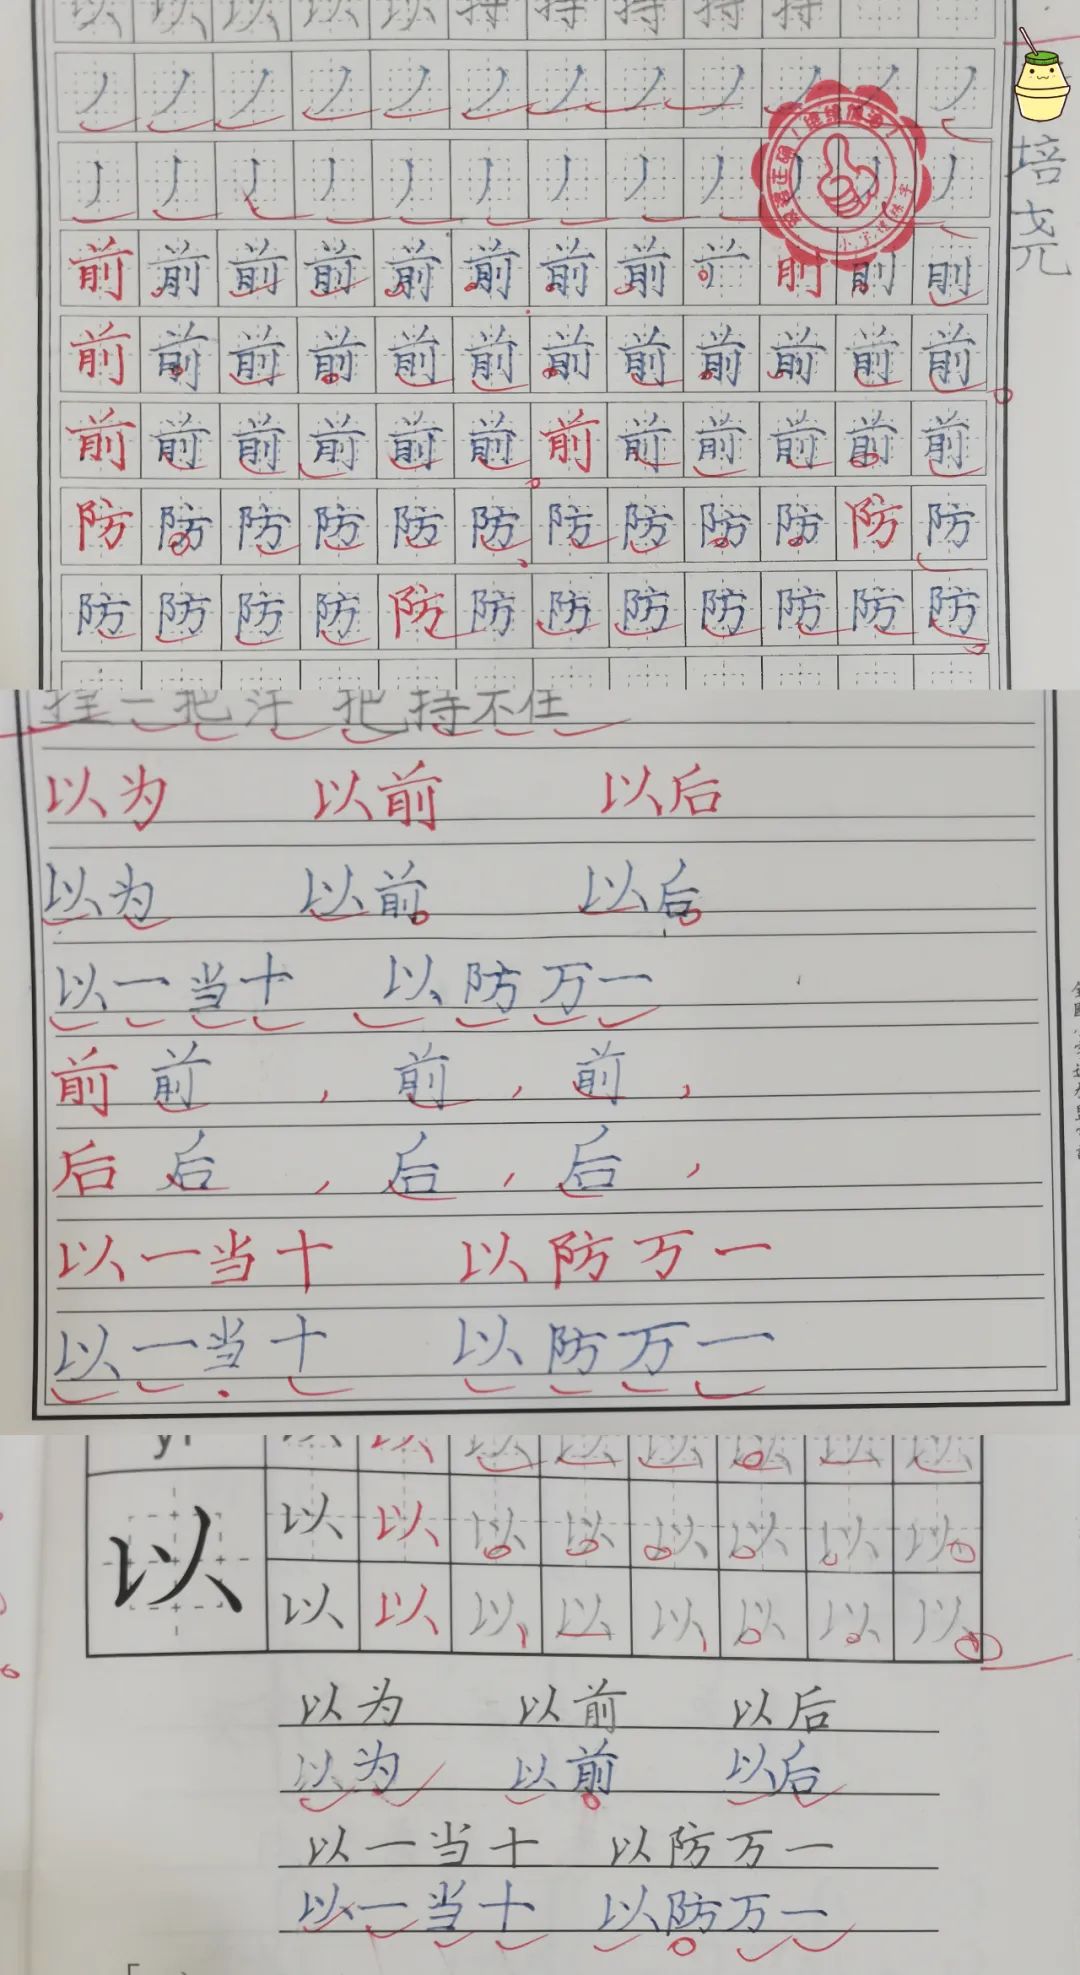 以 以 以 以 以 持 持 持 持 持
培尧
前 前 前 前 前 前 前 前
前 前 前 前 前 前 前 前 前 前 前 前
前 前 前 前 前 前 前 前 前 前 前 前
防 防 防 防 防 防 防 防 防 防 防 防
防 防 防 防 防 防 防 防 防 防 防 防
一把汗 把持不住
以为 以前 以后
以为 以前 以后
以一当十 以防万一
前 前 , 前 , 前 ,
后 后 , 后 , 后 ,
以一当十 以防万一
以一当十 以防万一
yǐ 以 以 以 以 以 以 以 以
以 以 以 以 以 以 以 以 以
以 以 以 以 以 以 以 以
以为 以前 以后
以为 以前 以后
以一当十 以防万一
以一当十 以防万一